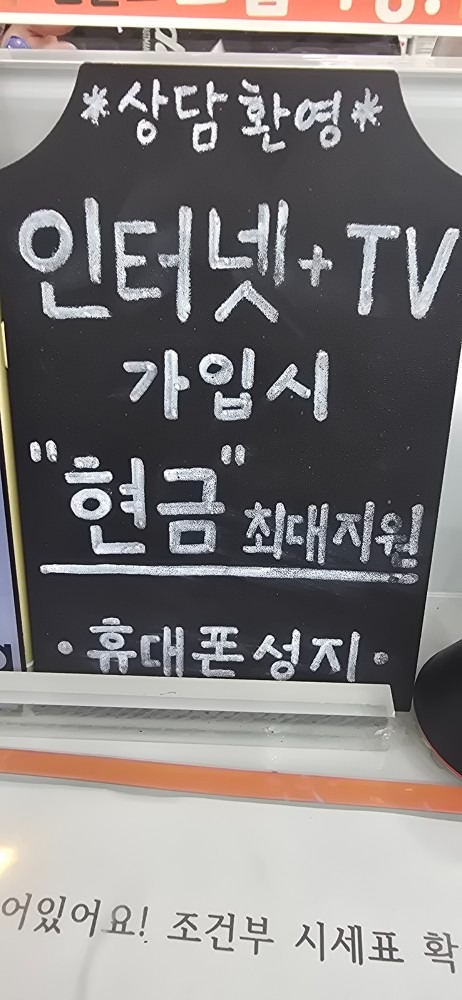 *상담 환영*
인터넷+TV
가입시
"현금" 최대지원
·휴대폰성지·
어있어요! 조건부 시세표 확